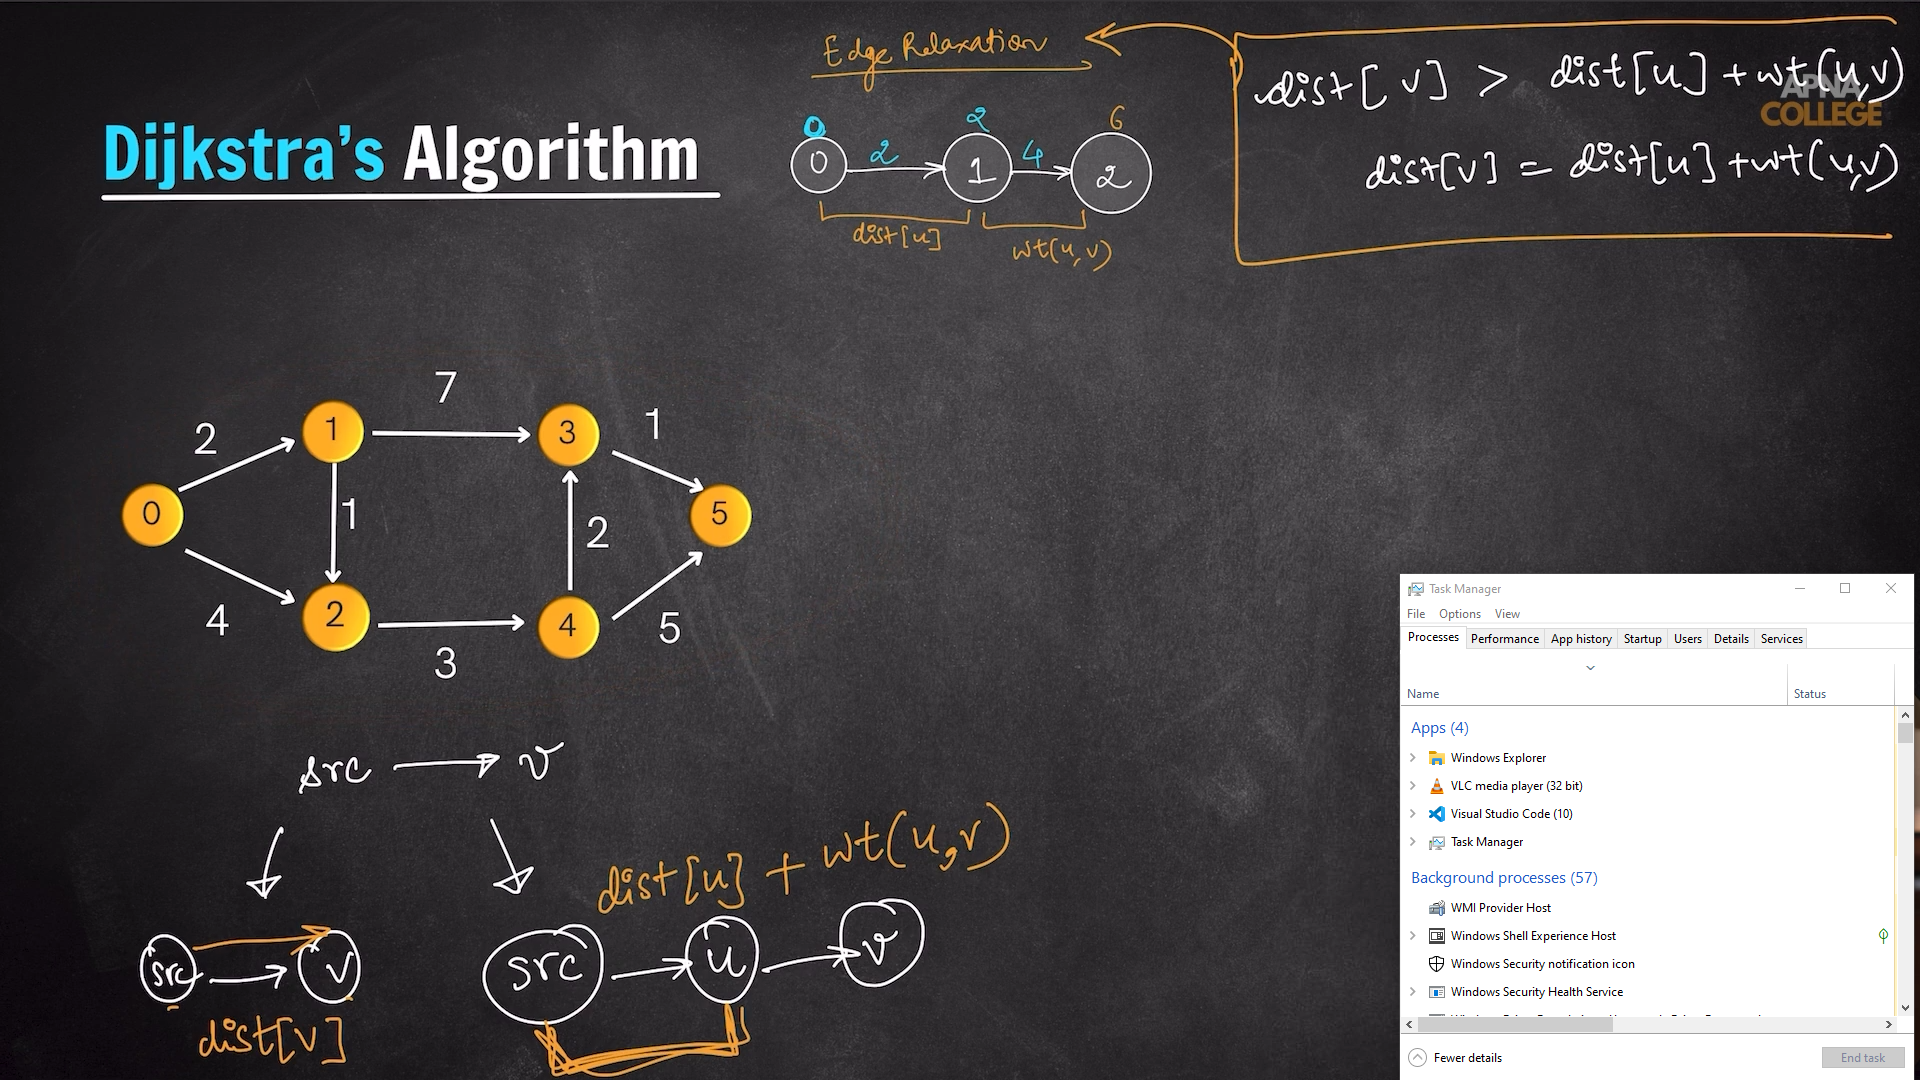 Edge Relaxation
dist[v] > dist[u] + wt(u,v)
APNA
COLLEGE
dist[v] = dist[u] + wt(u,v)
Dijkstra's Algorithm
0 2 6
0 2 1 4 2
dist[u] wt(u,v)
7
2 1 3 1
0 1 2 5
4 2 4 5
3
src v
dist[u] + wt(u,v)
src v src u v
dist[v]
Task Manager
File Options View
Processes Performance App history Startup Users Details Services
Name Status
Apps (4)
Windows Explorer
VLC media player (32 bit)
Visual Studio Code (10)
Task Manager
Background processes (57)
WMI Provider Host
Windows Shell Experience Host
Windows Security notification icon
Windows Security Health Service
Fewer details End task